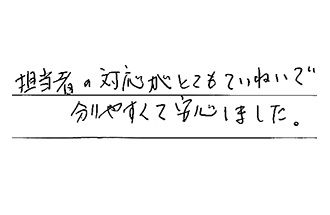 担当者の対応がとてもていねいで
分りやすくて安心しました。